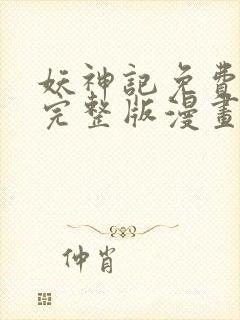 妖神記免費
完整版漫畫
仲肖